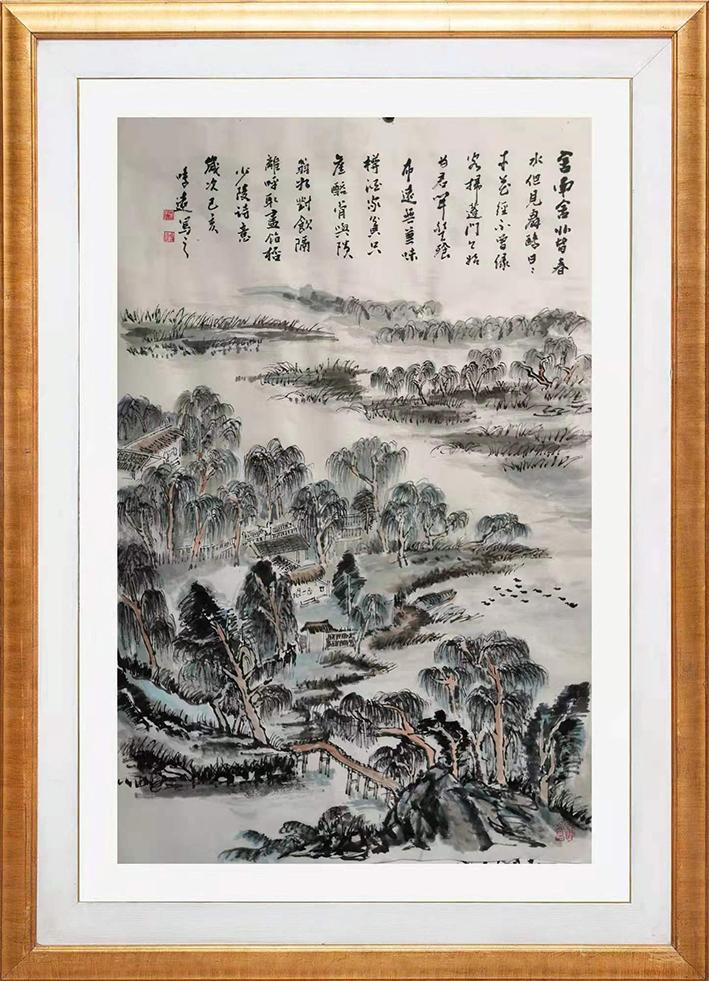 舍南舍北皆春
水但見群鷗日々
来花徑不曾缘
客掃蓬門今始
为君開盤飧
市遠無兼味
樽酒家貧只
舊醅肯與隣
翁相對飲隔
籬呼取盡餘杯
少陵詩意
歲次己亥
遠寫之